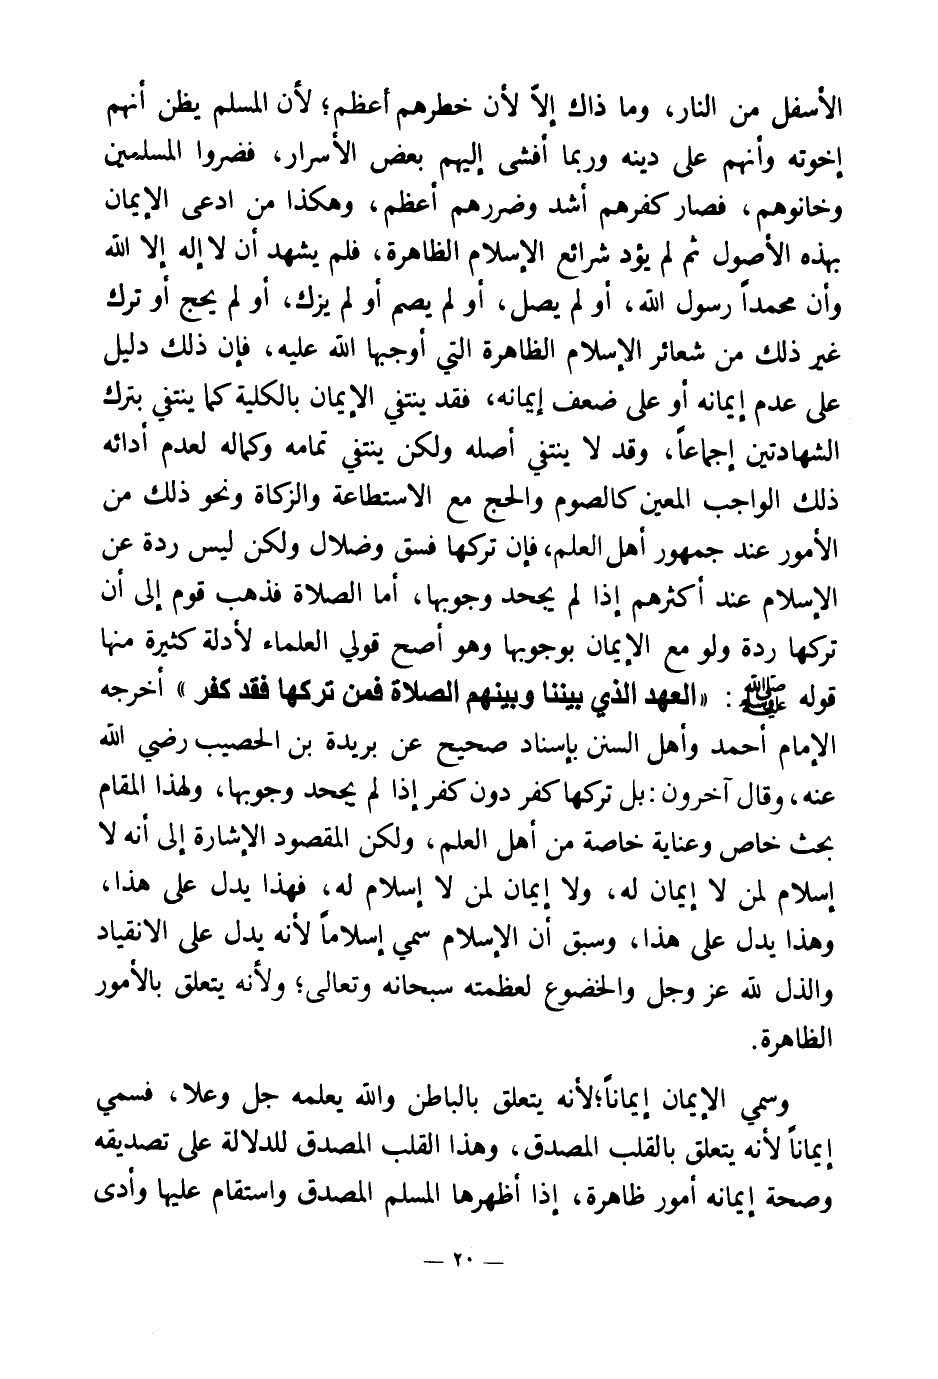 الأسفل من النار، وما ذاك إلاّ لأن خطرهم أعظم؛ لأن المسلم يظن أنهم
إخوته وأنهم على دينه وربما أفشى إليهم بعض الأسرار، فضروا المسلمين
وخانوهم، فصار كفرهم أشد وضررهم أعظم، وهكذا من ادعى الإيمان
بهذه الأصول ثم لم يؤد شرائع الإسلام الظاهرة، فلم يشهد أن لا إله إلا الله
وأن محمداً رسول الله، أو لم يصل، أو لم يصم أو لم يزك، أو لم يحج أو ترك
غير ذلك من شعائر الإسلام الظاهرة التي أوجبها الله عليه، فإن ذلك دليل
على عدم إيمانه أو على ضعف إيمانه، فقد ينتفي الإيمان بالكلية كما ينتفي بترك
الشهادتين إجماعاً، وقد لا ينتفي أصله ولكن ينتفي تمامه وكماله لعدم أدائه
ذلك الواجب المعين كالصوم والحج مع الاستطاعة والزكاة ونحو ذلك من
الأمور عند جمهور أهل العلم، فإن تركها فسق وضلال ولكن ليس ردة عن
الإسلام عند أكثرهم إذا لم يجحد وجوبها، أما الصلاة فذهب قوم إلى أن
تركها ردة ولو مع الإيمان بوجوبها وهو أصح قولي العلماء لأدلة كثيرة منها
قوله ﷺ : «العهد الذي بيننا وبينهم الصلاة فمن تركها فقد كفر» أخرجه
الإمام أحمد وأهل السنن بإسناد صحيح عن بريدة بن الحصيب رضي الله
عنه، وقال آخرون: بل تركها كفر دون كفر إذا لم يجحد وجوبها، ولهذا المقام
بحث خاص وعناية خاصة من أهل العلم، ولكن المقصود الإشارة إلى أنه لا
إسلام لمن لا إيمان له، ولا إيمان لمن لا إسلام له، فهذا يدل على هذا،
وهذا يدل على هذا، وسبق أن الإسلام سمي إسلاماً لأنه يدل على الانقياد
والذل لله عز وجل والخضوع لعظمته سبحانه وتعالى؛ ولأنه يتعلق بالأمور
الظاهرة.
وسمي الإيمان إيماناً؛ لأنه يتعلق بالباطن والله يعلمه جل وعلا، فسمي
إيماناً لأنه يتعلق بالقلب المصدق، وهذا القلب المصدق للدلالة على تصديقه
وصحة إيمانه أمور ظاهرة، إذا أظهرها المسلم المصدق واستقام عليها وأدى
— ٢٠ —